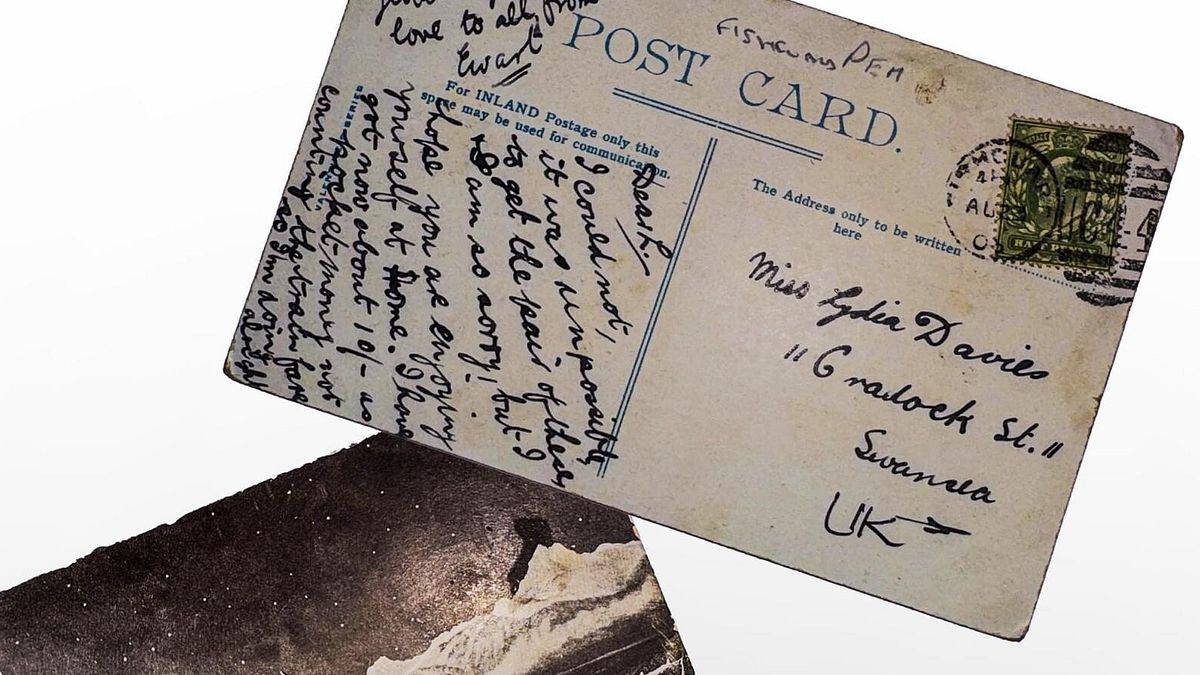 love to all from
Ewart
POST CARD.
FISHGUARD PEM
For INLAND Postage only this
space may be used for communication.
SERIES
Dear L
I could not,
it was impossible,
to get the pair of these,
I am so sorry, but I
hope you are enjoying
yourself at Home. I have
got now about 10/- as
pocket-money not
counting the train fare
so I'm doing
alright
The Address only to be written
here
AU
HALFPENNY
Miss Lydia Davies
"Cradock St."
Swansea
UK